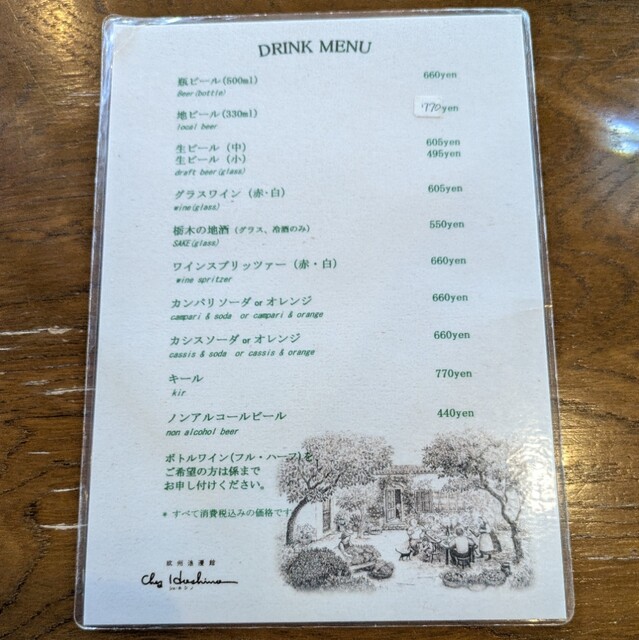 DRINK MENU
瓶ビール(500ml) 660yen
Beer(bottle)
地ビール(330ml) 770yen
local beer
生ビール（中） 605yen
生ビール（小） 495yen
draft beer(glass)
グラスワイン（赤・白） 605yen
wine(glass)
栃木の地酒（グラス、冷酒のみ） 550yen
SAKE(glass)
ワインスプリッツァー（赤・白） 660yen
wine spritzer
カンパリソーダ or オレンジ 660yen
campari & soda or campari & orange
カシスソーダ or オレンジ 660yen
cassis & soda or cassis & orange
キール 770yen
kir
ノンアルコールビール 440yen
non alcohol beer
ボトルワイン(フル・ハーフ)を
ご希望の方は係まで
お申し付けください。
* すべて消費税込みの価格です
欧州浪漫館
Chez Hoshino
シェ・ホシノ